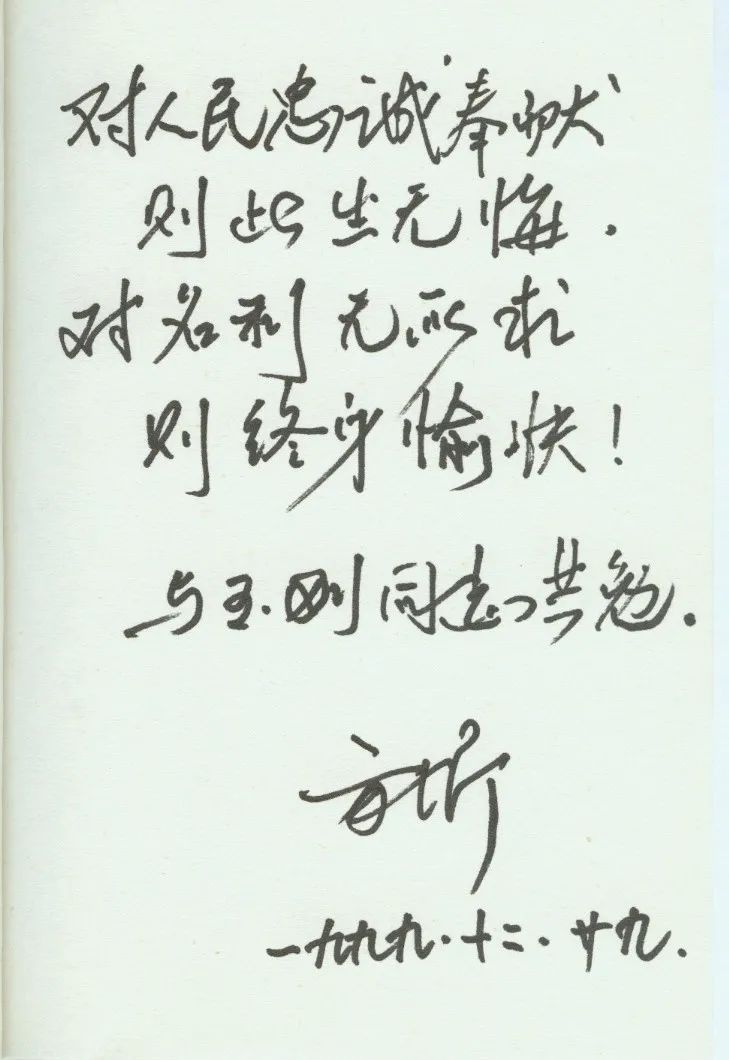 对人民忠诚奉献
则此生无悔.
对名利无所求
则终身愉快!
与玉刚同志共勉.
方圻
一九九九.十二.廿九.